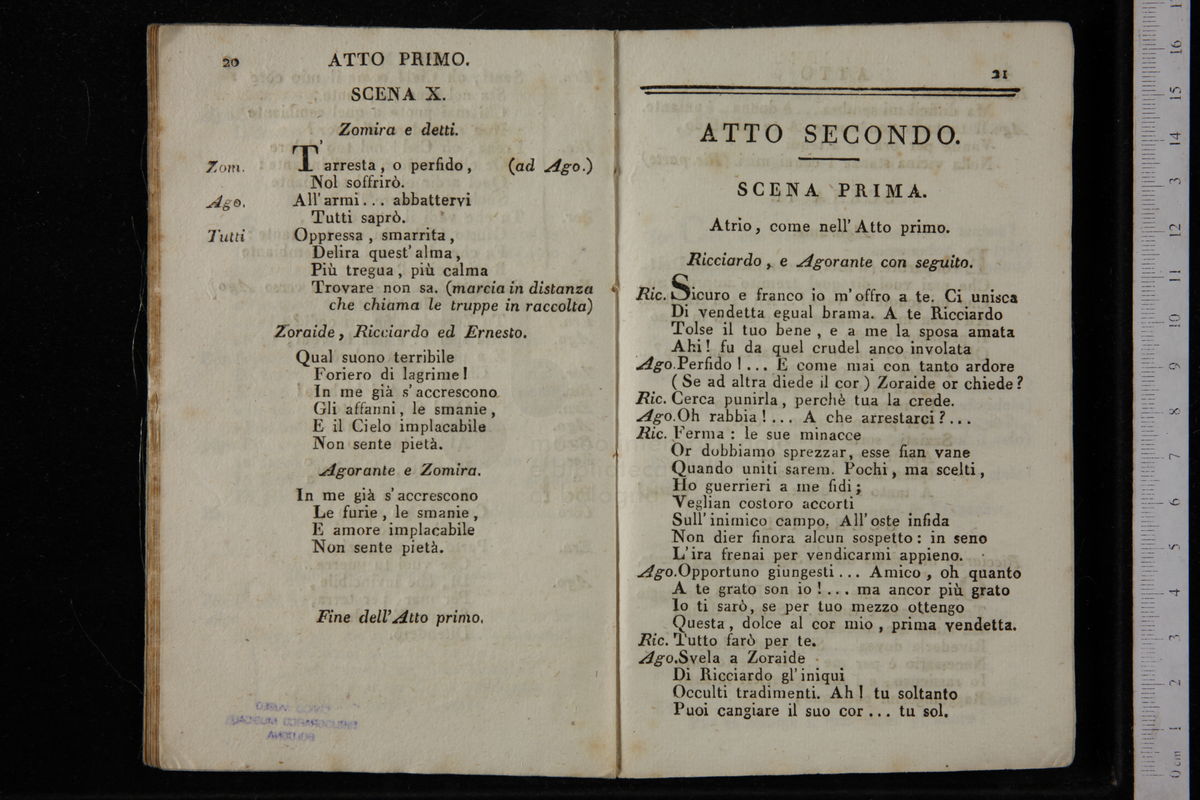 20
ATTO PRIMO.
SCENA X.
Zomira e detti.
Zom. T' arresta, o perfido, (ad Ago.)
Nol soffrirò.
Ago. All' armi... abbattervi
Tutti saprò.
Tutti Oppressa, smarrita,
Delira quest' alma,
Più tregua, più calma
Trovare non sa. (marcia in distanza
che chiama le truppe in raccolta)
Zoraide, Ricciardo ed Ernesto.
Qual suono terribile
Foriero di lagrime!
In me già s' accrescono
Gli affanni, le smanie,
E il Cielo implacabile
Non sente pietà.
Agorante e Zomira.
In me già s' accrescono
Le furie, le smanie,
E amore implacabile
Non sente pietà.
Fine dell' Atto primo.
21
ATTO SECONDO.
SCENA PRIMA.
Atrio, come nell' Atto primo.
Ricciardo, e Agorante con seguito.
Ric. Sicuro e franco io m' offro a te. Ci unisca
Di vendetta egual brama. A te Ricciardo
Tolse il tuo bene, e a me la sposa amata
Ahi! fu da quel crudel anco involata
Ago. Perfido!... E come mai con tanto ardore
(Se ad altra diede il cor) Zoraide or chiede?
Ric. Cerca punirla, perchè tua la crede.
Ago. Oh rabbia!... A che arrestarci?...
Ric. Ferma: le sue minacce
Or dobbiamo sprezzar, esse fian vane
Quando uniti sarem. Pochi, ma scelti,
Ho guerrieri a me fidi;
Veglian costoro accorti
Sull' inimico campo. All' oste infida
Non dier finora alcun sospetto: in seno
L' ira frenai per vendicarmi appieno.
Ago. Opportuno giungesti... Amico, oh quanto
A te grato son io!... ma ancor più grato
Io ti sarò, se per tuo mezzo ottengo
Questa, dolce al cor mio, prima vendetta.
Ric. Tutto farò per te.
Ago. Svela a Zoraide
Di Ricciardo gl' iniqui
Occulti tradimenti. Ah! tu soltanto
Puoi cangiare il suo cor... tu sol.
16
15
14
3
12
2
11
10
9
8
7
6
5
4
3
2
1
0 cm